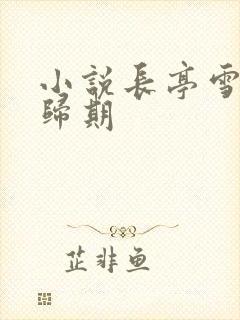 小說長亭雪
歸期
芷非魚